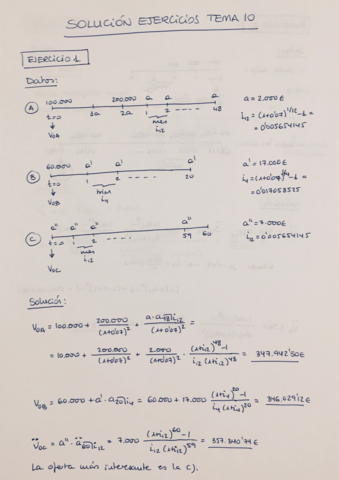 SOLUCIÓN EJERCICIOS TEMA 10
EJERCICIO 1.
Datos:
A 100.000 200.000 a a a
t=0 1a 2a 1 2 ---- 48
V0A mes i12
a = 2.000€
i12 = (1+0'07)^1/12 - 1 =
= 0'005654145
B 60.000 a' a' a'
t=0 1 2 ---- 20
V0B trim i4
a' = 17.000€
i4 = (1+0'07)^1/4 - 1
= 0'017058525
C a'' a'' a'' a''
t=0 1 2 ---- 59 60
V0C mes i12
a'' = 7.000€
i12 = 0'005654145
Solución:
V0A = 100.000 + 200.000/(1+0'07)^2 + a·a48⌉i12/(1+0'07)^2 =
= 10.000 + 200.000/(1+0'07)^2 + 2.000/(1+0'07)^2 · (1+i12)^48 - 1/i12(1+i12)^48 = 347.942'50€
V0B = 60.000 + a'·a20⌉i4 = 60.000 + 17.000 (1+i4)^20 - 1/i4(1+i4)^20 = 346.029'12€
V̈0C = a''·ä60⌉i12 = 7.000 (1+i12)^60 - 1/i12(1+i12)^59 = 357.340'74€
La oferta más interesante es la C).